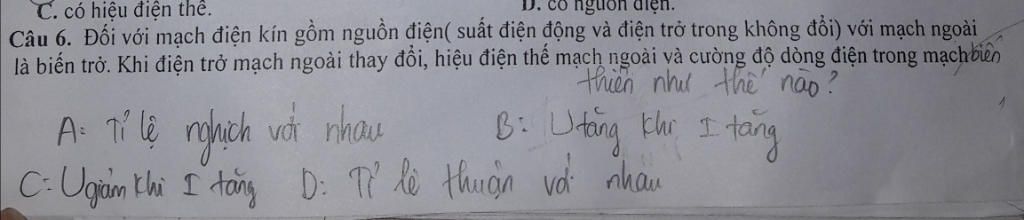 C. có hiệu điện thế. D. có nguồn điện.
Câu 6. Đối với mạch điện kín gồm nguồn điện( suất điện động và điện trở trong không đổi) với mạch ngoài
là biến trở. Khi điện trở mạch ngoài thay đổi, hiệu điện thế mạch ngoài và cường độ dòng điện trong mạch biến
thiên như thế nào?
A: Tỉ lệ nghịch với nhau B: U tăng khi I tăng
C: U giảm khi I tăng D: Tỉ lệ thuận với nhau